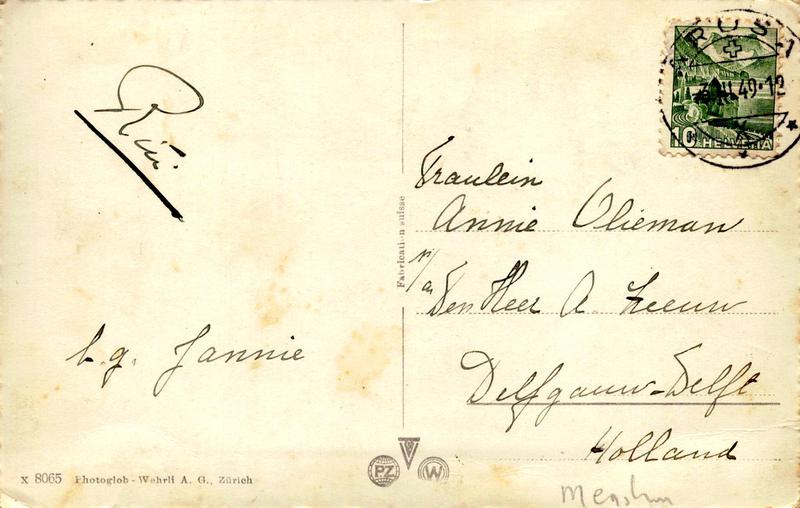 b.g. Jannie
X 8065 Photoglob-Wehrli A. G., Zürich
Fabrication suisse
PZ
W
AROSA
49·12
10 HELVETIA
Fraulein
Annie Vlieman
p/a Den Heer A. Leeuw
Delfgauw-Delft
Holland